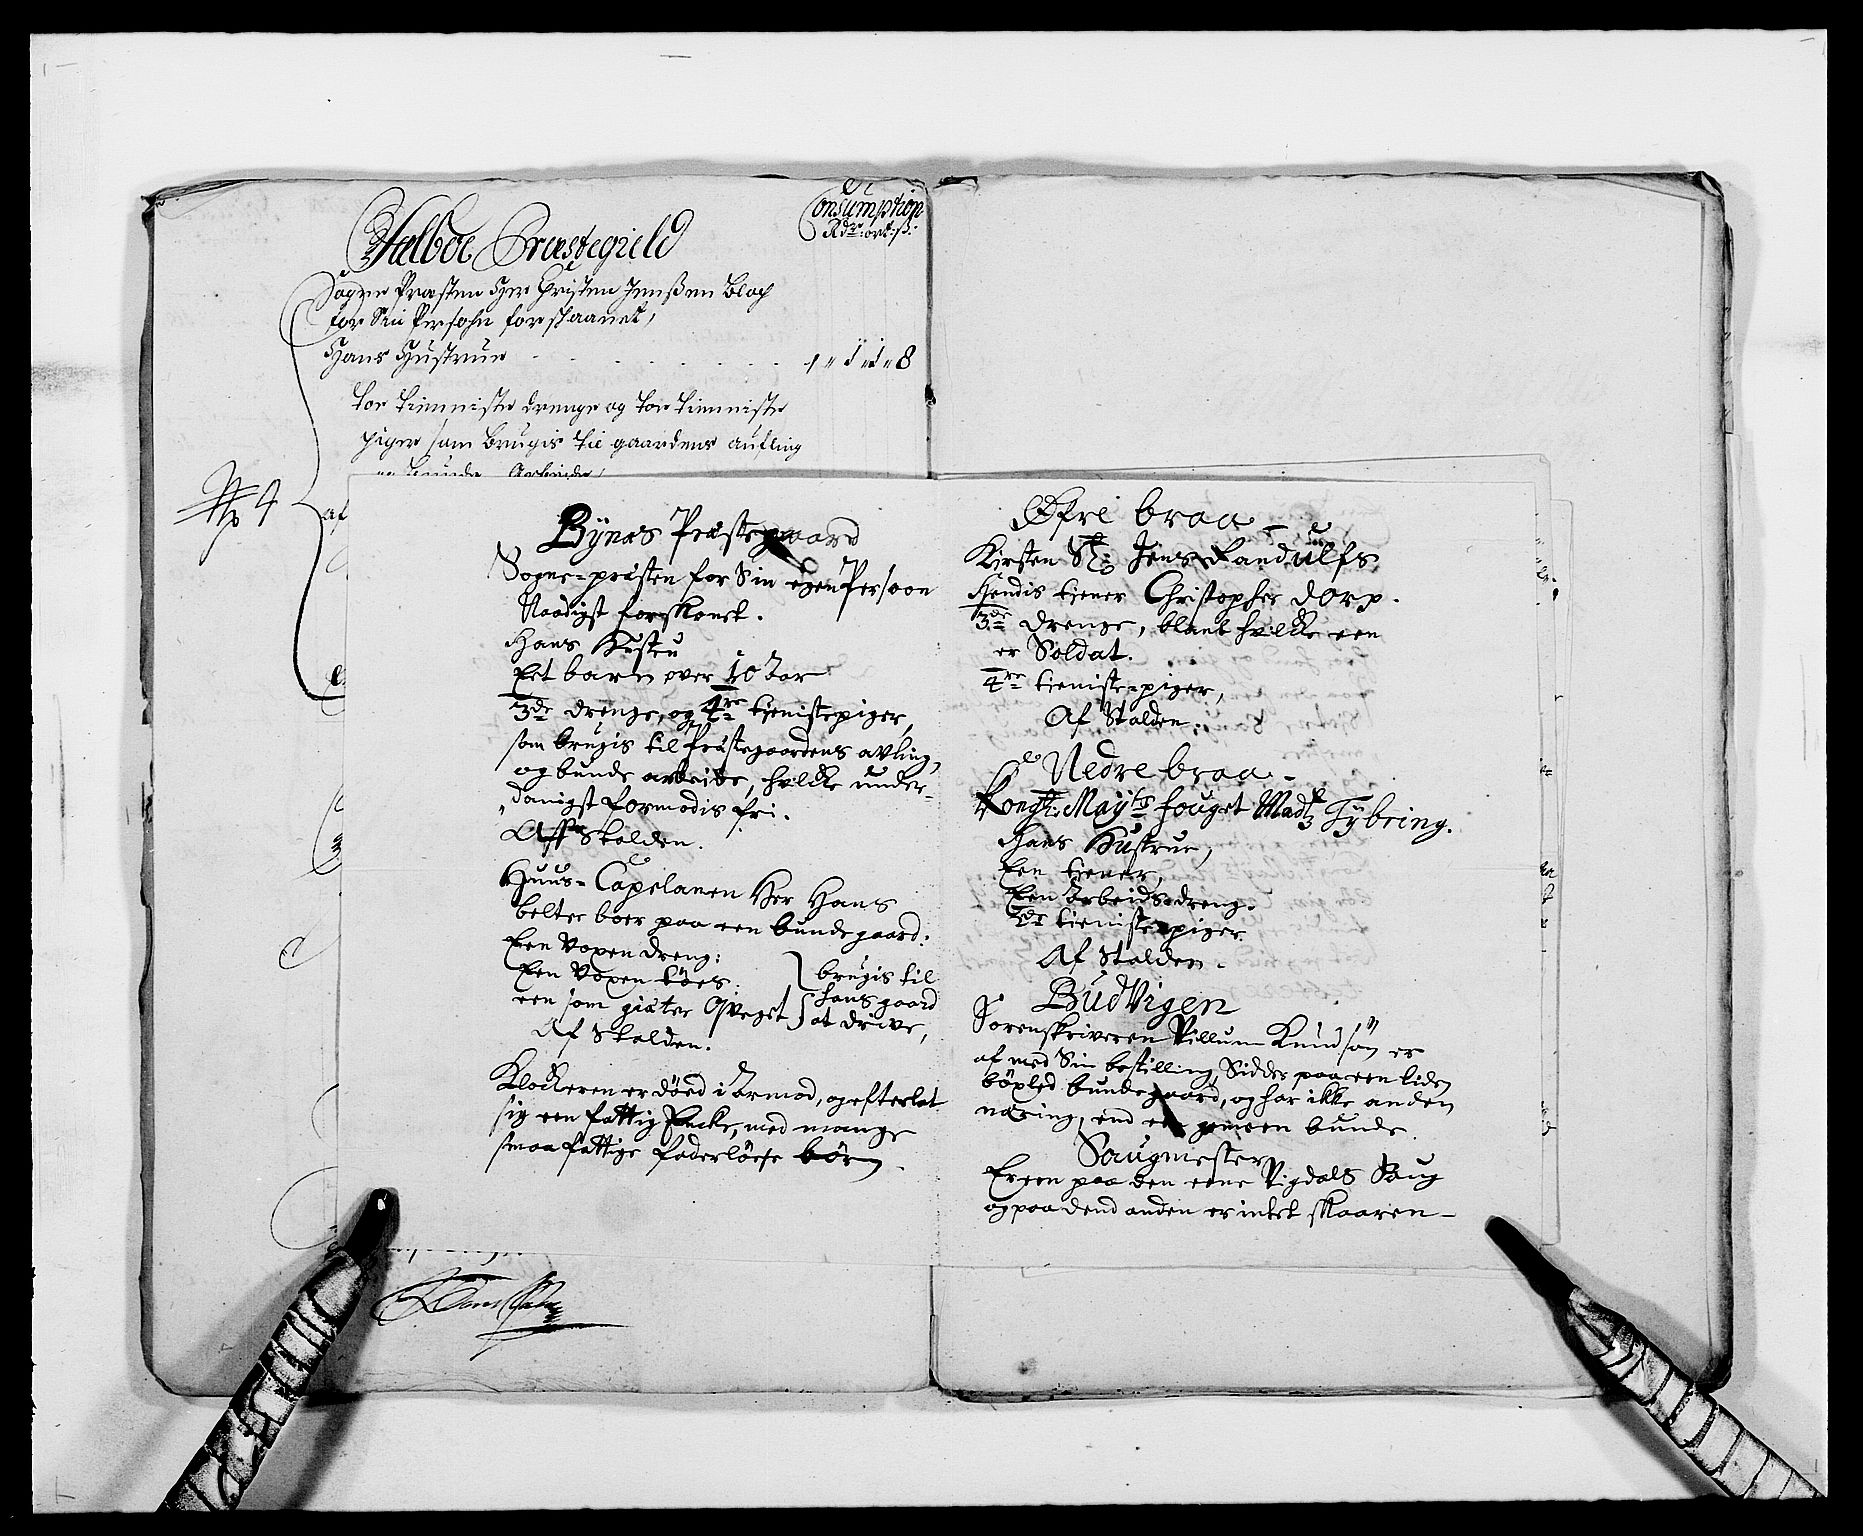 Consumption
Rdr: ort: ß:
Selboe Præstegield
Sogne Præsten Her Christen Jenßen Bloch
for Sin Persohn forskaanet,
Hans Hustrue
toe tienniste drenge og toe tienniste
piger som brugis til gaardens aufling
og bunde Arbeide,
No 4
af
Bÿnes Præstegaard
Sogne-præsten for Sin egen Persoon
Naadigst forskonet.
Hans Hustru
Eet barn over 10 Aar
3de drenge, og 4re tienistepiger,
som brugis til Præstegaardens avling,
og bunde arbeide, hvilcke under-
danigst formodis fri.
Aff Skolden.
Huus-Capelanen Her Hans
belter boer paa een bundegaard:
Een Voxen dreng:
Een Voxen tøes:
een som giæter Qveget
brugis til
hans gaard
at drive,
Af Skolden.
Klockeren er dôed i Armod, og efterlat
sig een fattig Encke, med mange
smaa fattige faderlôese bôrn.
Øfre braa
Kirsten Sl: Jens Randulfs
Hendis tiener Christopher dorp.
3de drenge, blant hvilcke een
er Soldat.
4re tieniste-piger,
Af Skolden.
Nedre braa
Kongl: Mayts fouget Madtz Tÿbring.
Hans Hustrue,
Een tiener,
Een Arbeids-dreng.
3de tieniste-piger
Af Skolden.
Budvigen
Sorenskriveren Villum Knudsøn er
af med Sin bestilling, Sidder paa een liden
bôxled bundegaard, og har ikke anden
næring, end een gemeen bunde.
Saugmester
Er een paa den eene Vigdals Saug
og paa dend anden er intet skaaren